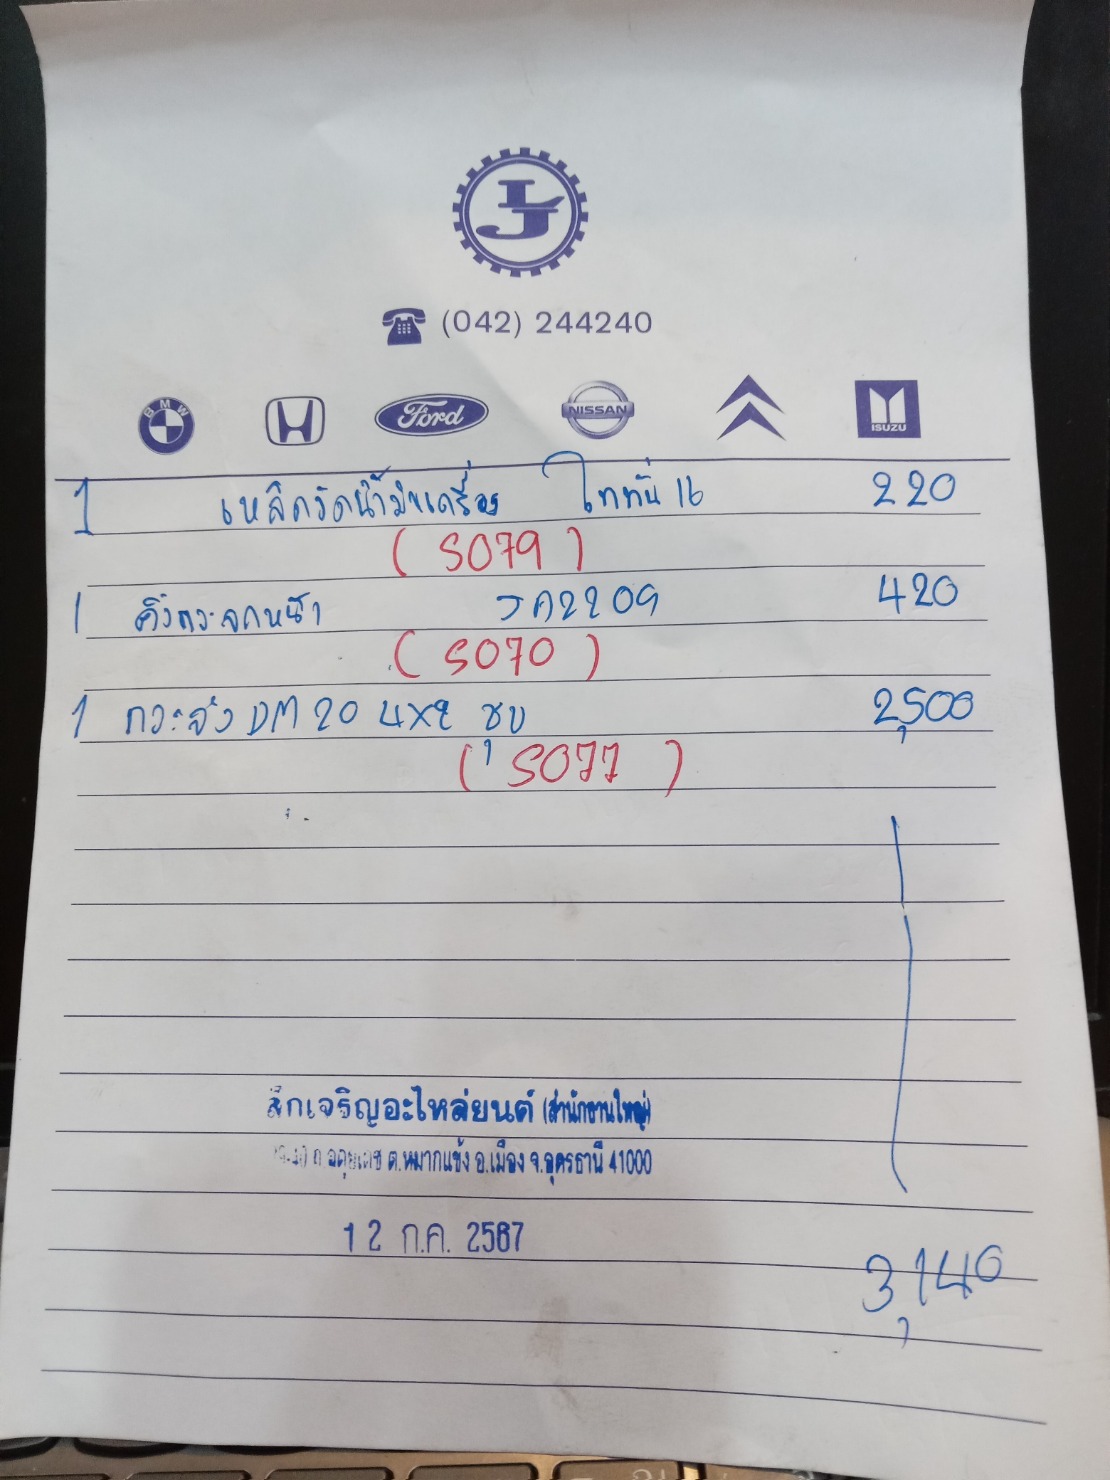 (042) 244240
BMW Ford NISSAN ISUZU
1 เหล็กวัดน้ำมันเครื่อง ไททัน 16 220
(S079)
1 คิ้วกระจกหน้า JA2209 420
(S070)
1 กระจัง DM 20 4x2 ชุบ 2,500
(S077)
ลักเจริญอะไหล่ยนต์ (สำนักงานใหญ่)
ถ.อดุยเดช ต.หมากแข้ง อ.เมือง จ.อุดรธานี 41000
12 ก.ค. 2567
3,140